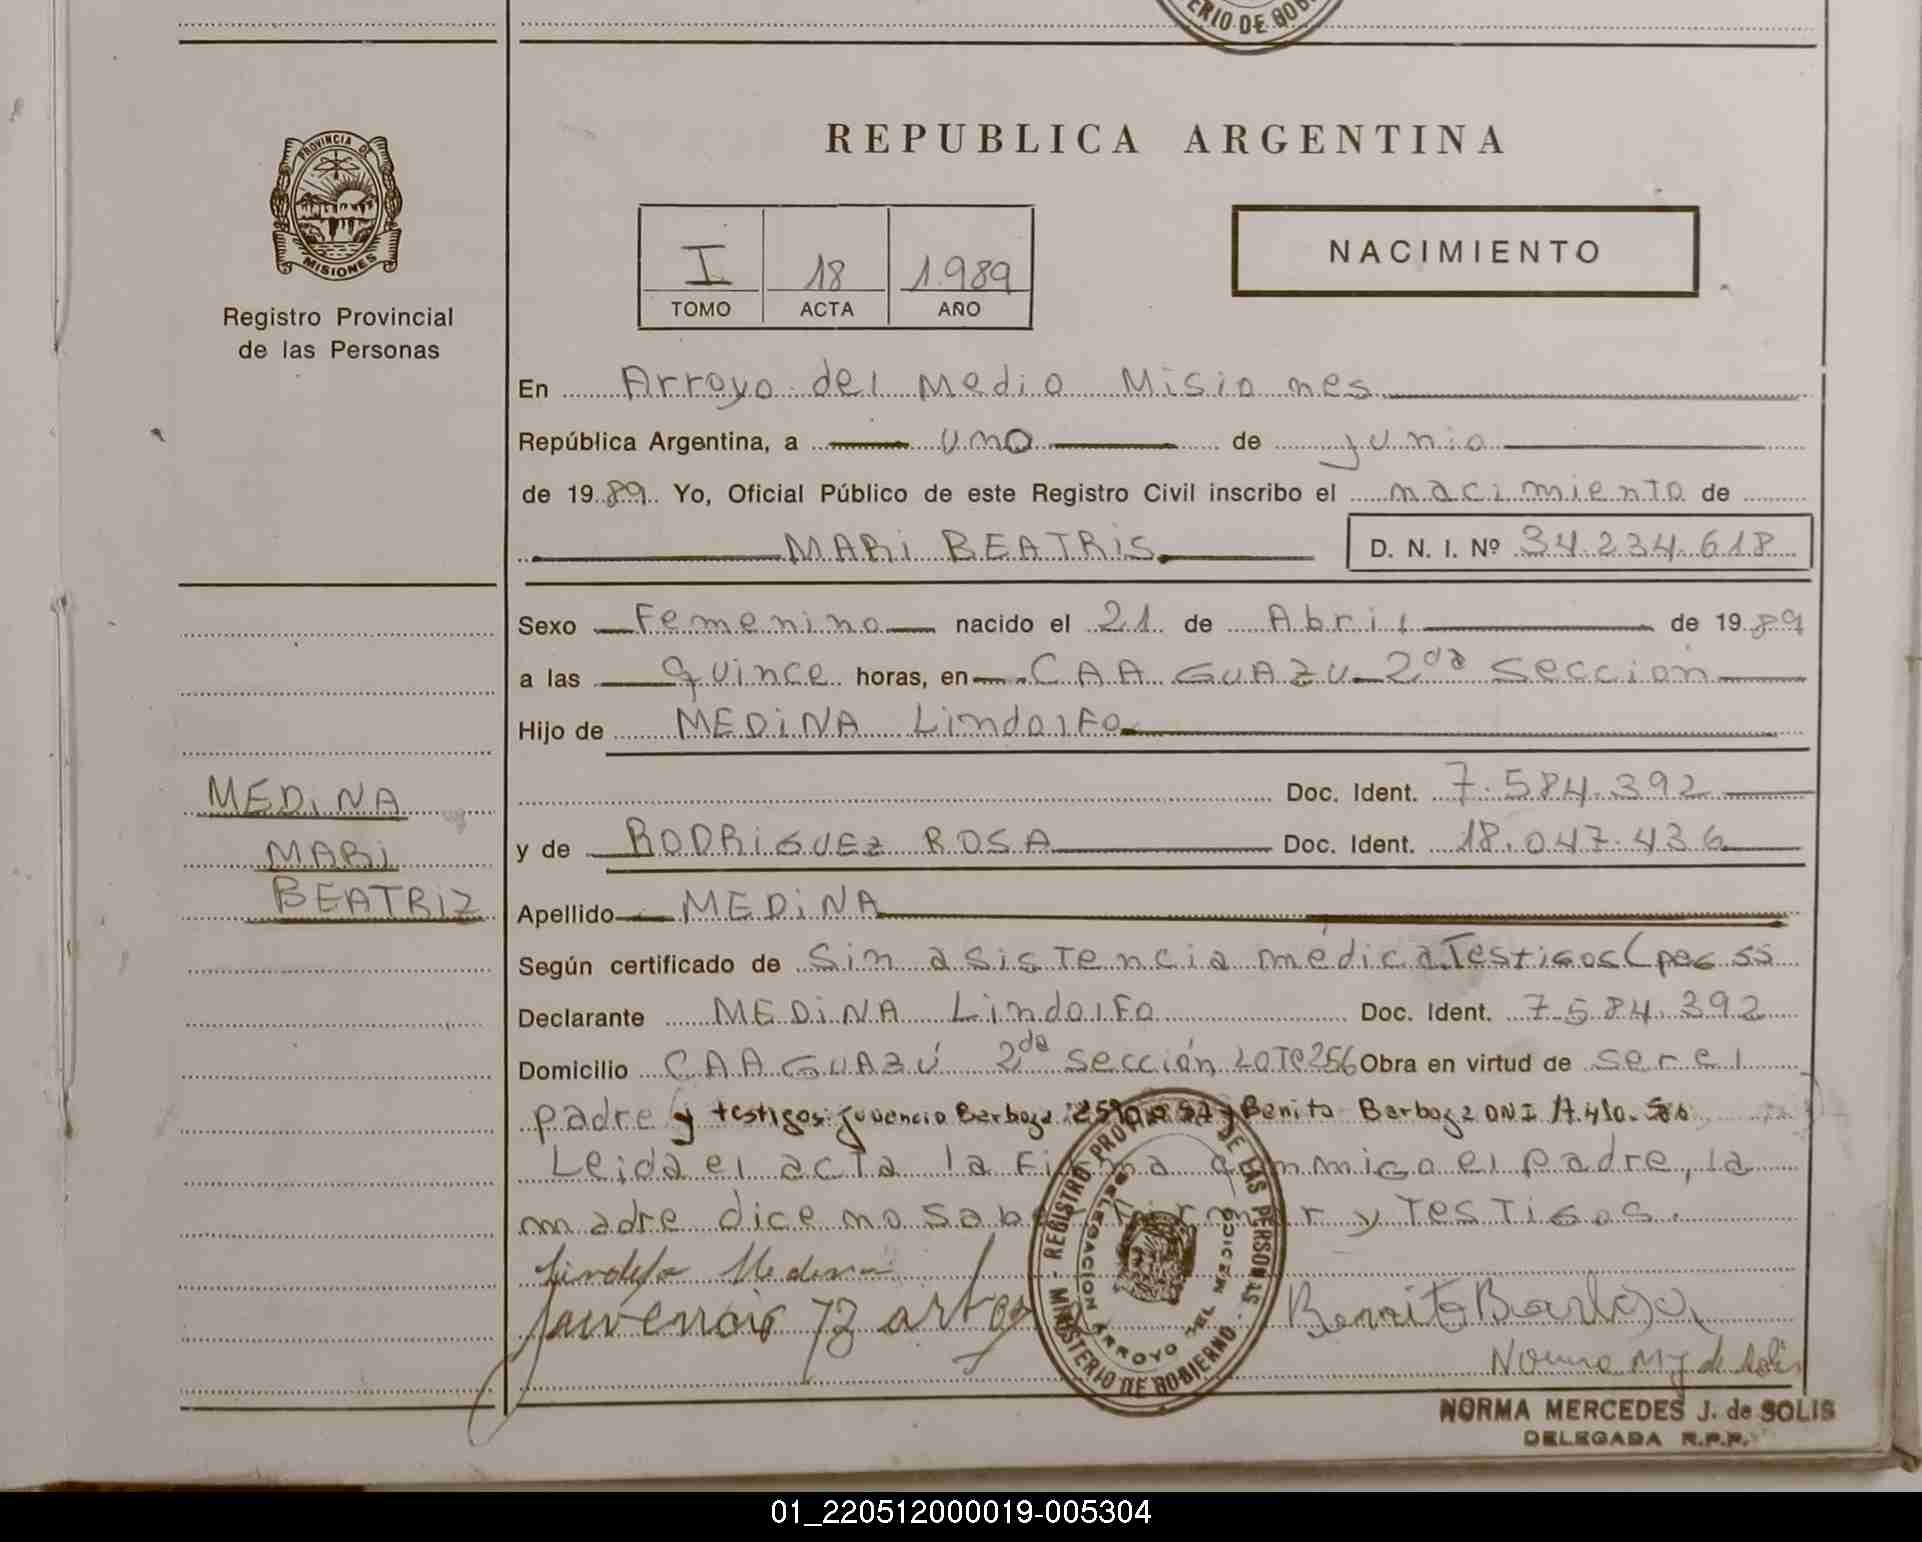 ERIO DE GOB
REPUBLICA ARGENTINA
PROVINCIA DE
MISIONES
Registro Provincial
de las Personas
I 18 1.989
TOMO ACTA AÑO
NACIMIENTO
En Arroyo del Medio Misiones
República Argentina, a uno de junio
de 1989 Yo, Oficial Público de este Registro Civil inscribo el nacimiento de
MARI BEATRIS D. N. I. Nº 34.234.618
Sexo Femenino nacido el 21 de Abril de 1989
a las quince horas, en CAA GUAZU 2da Sección
Hijo de MEDINA Lindolfo
Doc. Ident. 7.584.392
y de RODRIGUEZ ROSA Doc. Ident. 18.047.436
MEDINA
MARI
BEATRIZ
Apellido MEDINA
Según certificado de Sin asistencia médica Testigos
Declarante MEDINA Lindolfo Doc. Ident. 7.584.392
Domicilio CAA GUAZÚ 2da Sección LOTE 256 Obra en virtud de ser el
padre y testigos: Juvencio Barboza y Benito Barboza DNI
Leida el acta la firma conmigo el padre, la
madre dice no saber firmar y Testigos.
Lindolfo Medina
Juvencio Barboza
Benito Barboza
REGISTRO PROVINCIAL DE LAS PERSONAS
MINISTERIO DE GOBIERNO
DELEGACION ARROYO DEL MEDIO
Norma M J de Solis
NORMA MERCEDES J. de SOLIS
DELEGADA R.P.P.
01_220512000019-005304